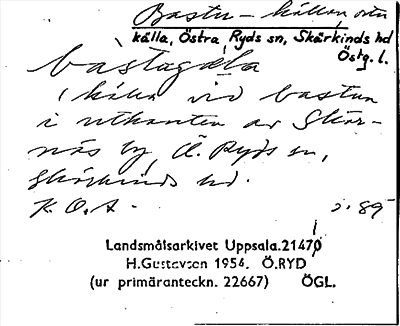 Bastu-källan, orten
källa, Östra Ryds sn, Skärkinds hd
Östg. l.
bastagäla
källa vid bastun
i utkanten av Skär-
näs by, Ö. Ryds sn,
Skärkinds hd.
K. O. A. s. 89
Landsmålsarkivet Uppsala.21470
H.Gustavson 1954. Ö.RYD
(ur primäranteckn. 22667) ÖGL.